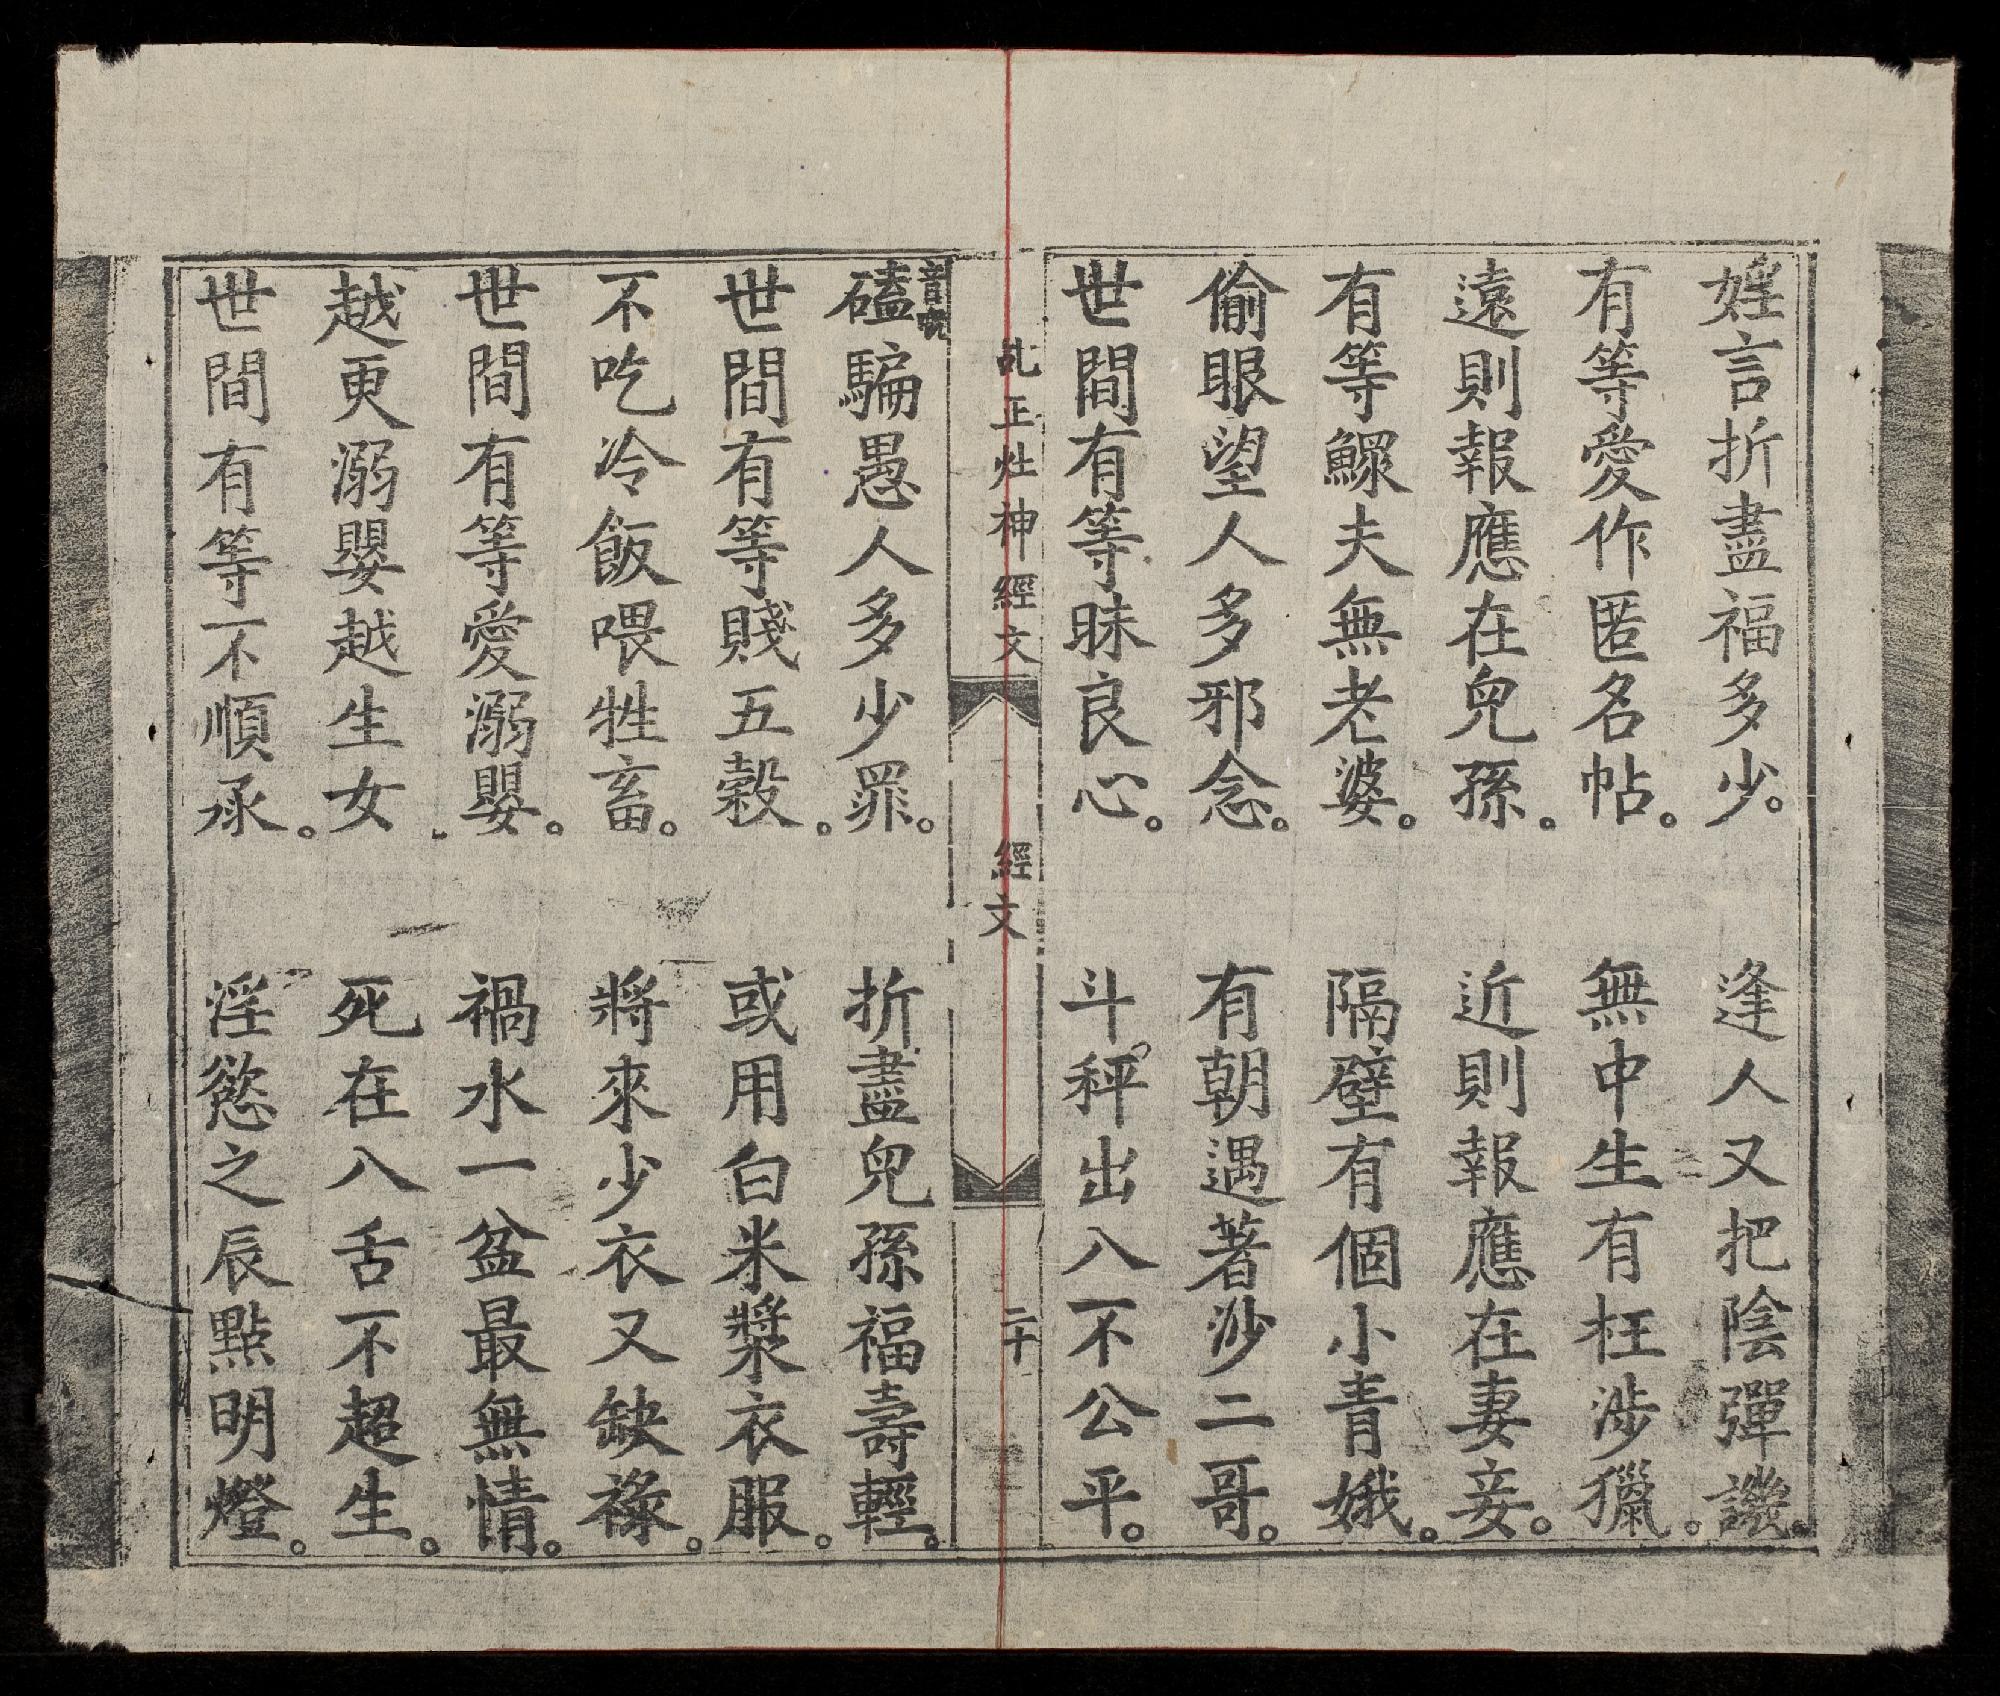 婬言折盡福多少。逢人又把陰彈譏。
有等愛作匿名帖。無中生有枉涉獵。
遠則報應在兒孫。近則報應在妻妾。
有等鰥夫無老婆。隔壁有個小青娥。
偷眼望人多邪念。有朝遇著沙二哥。
世間有等昧良心。斗秤出入不公平。
乩正灶神經文 經文 二十
磕騙愚人多少罪。折盡兒孫福壽輕。
世間有等賤五穀。或用白米漿衣服。
不吃冷飯喂牲畜。將來少衣又缺祿。
世間有等愛溺嬰。禍水一盆最無情。
越更溺嬰越生女 死在八舌不超生。
世間有等不順承。淫慾之辰點明燈。